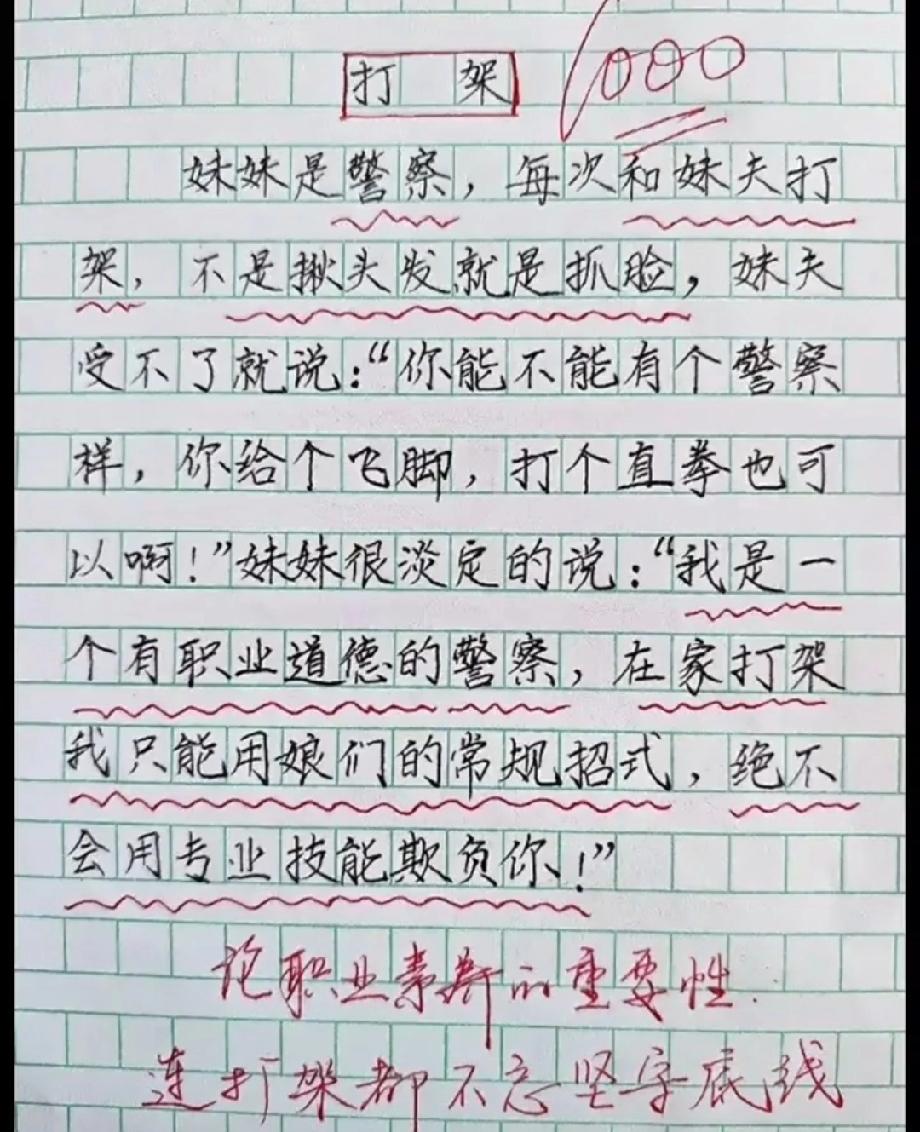 打架
1000
妹妹是警察，每次和妹夫打
架，不是揪头发就是抓脸，妹夫
受不了就说：“你能不能有个警察
样，你给个飞脚，打个直拳也可
以啊！”妹妹很淡定的说：“我是一
个有职业道德的警察，在家打架
我只能用娘们的常规招式，绝不
会用专业技能欺负你！”
论职业素养的重要性.
连打架都不忘坚守底线